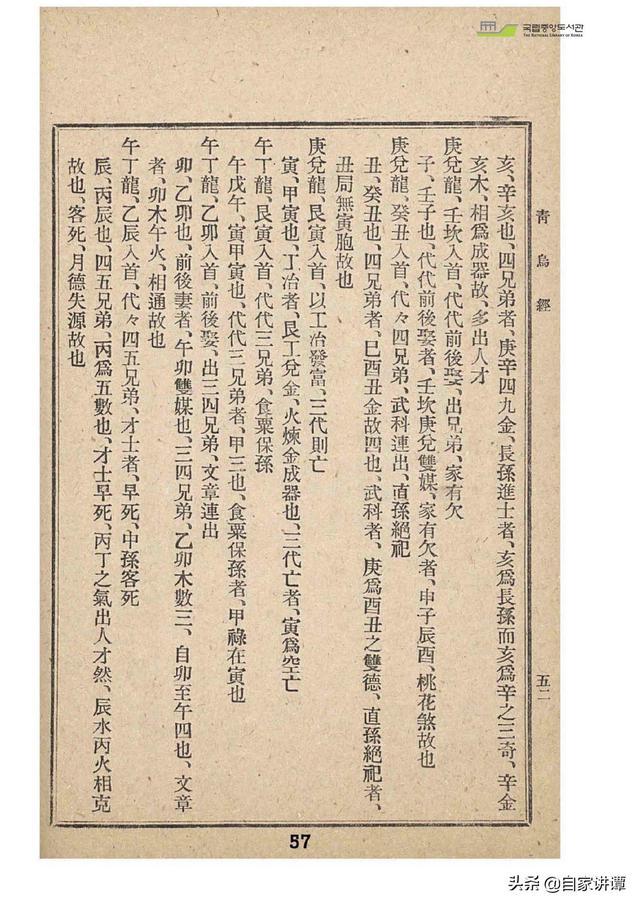 국립중앙도서관
THE NATIONAL LIBRARY OF KOREA
靑烏經
五二
亥、辛亥也、四兄弟者、庚辛四九金、長孫進士者、亥爲長孫而亥爲辛之三奇、辛金
亥木、相爲成器故、多出人才
庚兌龍、壬坎入首、代代前後娶、出兄弟、家有欠
子、壬子也、代代前後娶者、壬坎庚兌雙媒、家有欠者、申子辰酉、桃花煞故也
庚兌龍、癸丑入首、代々四兄弟、武科連出、直孫絕祀
丑、癸丑也、四兄弟者、巳酉丑金故四也、武科者、庚爲酉丑之雙德、直孫絕祀者、
丑局無寅胞故也
庚兌龍、艮寅入首、以工冶發富、三代則亡
寅、甲寅也、工冶者、艮工兌金、火煉金成器也、三代亡者、寅爲空亡
午丁龍、艮寅入首、代代三兄弟、食粟保孫
午戊午、寅甲寅也、代代三兄弟者、甲三也、食粟保孫者、甲祿在寅也
午丁龍、乙卯入首、前後娶、出三四兄弟、文章連出
卯、乙卯也、前後妻者、午卯雙媒也、三四兄弟、乙卯木數三、自卯至午四也、文章
者、卯木午火、相通故也
午丁龍、乙辰入首、代々四五兄弟、才士者、早死、中孫客死
辰、丙辰也、四五兄弟、丙爲五數也、才士早死、丙丁之氣出人才然、辰水丙火相克
故也、客死、月德失源故也
57
头条 @自家讲谭